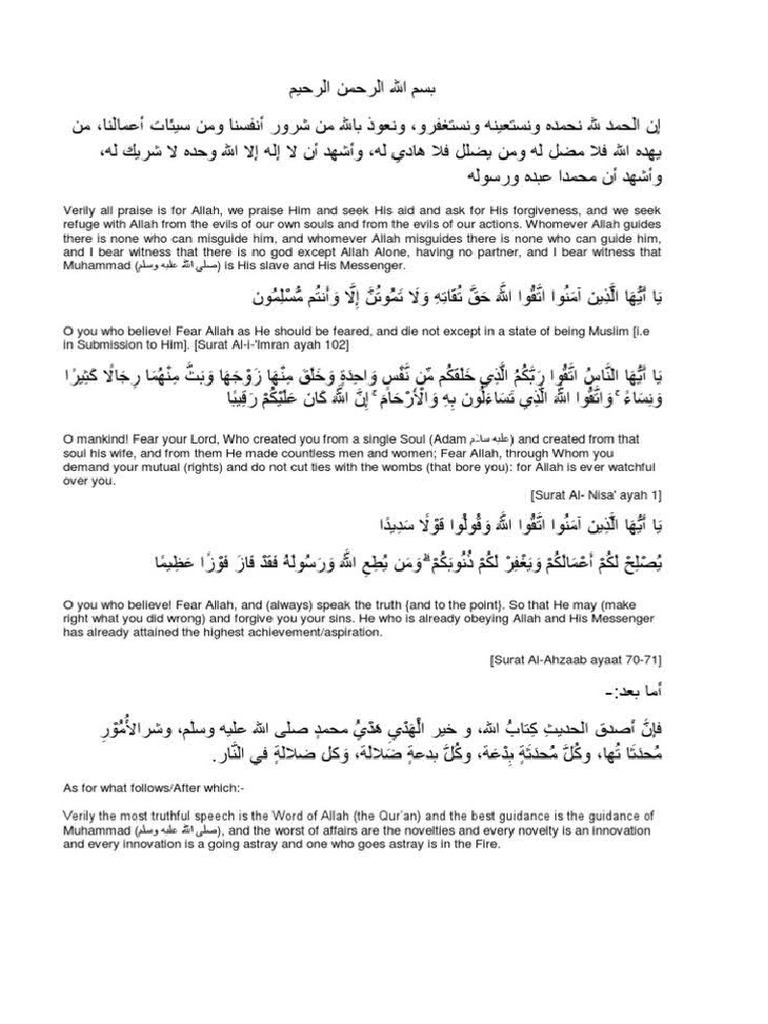 بسم الله الرحمن الرحيم
إن الحمد لله نحمده ونستعينه ونستغفرو، ونعوذ بالله من شرور أنفسنا ومن سيئات أعمالنا، من
يهده الله فلا مضل له ومن يضلل فلا هادي له، وأشهد أن لا إله إلا الله وحده لا شريك له،
وأشهد أن محمدا عبده ورسوله
Verily all praise is for Allah, we praise Him and seek His aid and ask for His forgiveness, and we seek
refuge with Allah from the evils of our own souls and from the evils of our actions. Whomever Allah guides
there is none who can misguide him, and whomever Allah misguides there is none who can guide him,
and I bear witness that there is no god except Allah Alone, having no partner, and I bear witness that
Muhammad (صلى الله عليه وسلم) is His slave and His Messenger.
يَا أَيُّهَا الَّذِينَ آمَنُوا اتَّقُوا اللَّهَ حَقَّ تُقَاتِهِ وَلَا تَمُوتُنَّ إِلَّا وَأَنتُم مُّسْلِمُونَ
O you who believe! Fear Allah as He should be feared, and die not except in a state of being Muslim [i.e
in Submission to Him]. [Surat Al-i-'Imran ayah 102]
يَا أَيُّهَا النَّاسُ اتَّقُوا رَبَّكُمُ الَّذِي خَلَقَكُم مِّن نَّفْسٍ وَاحِدَةٍ وَخَلَقَ مِنْهَا زَوْجَهَا وَبَثَّ مِنْهُمَا رِجَالًا كَثِيرًا
وَنِسَاءً ۚ وَاتَّقُوا اللَّهَ الَّذِي تَسَاءَلُونَ بِهِ وَالْأَرْحَامَ ۚ إِنَّ اللَّهَ كَانَ عَلَيْكُمْ رَقِيبًا
O mankind! Fear your Lord, Who created you from a single Soul (Adam عليه سلام) and created from that
soul his wife, and from them He made countless men and women; Fear Allah, through Whom you
demand your mutual (rights) and do not cut ties with the wombs (that bore you): for Allah is ever watchful
over you.
[Surat Al- Nisa' ayah 1]
يَا أَيُّهَا الَّذِينَ آمَنُوا اتَّقُوا اللَّهَ وَقُولُوا قَوْلًا سَدِيدًا
يُصْلِحْ لَكُمْ أَعْمَالَكُمْ وَيَغْفِرْ لَكُمْ ذُنُوبَكُمْ ۗ وَمَن يُطِعِ اللَّهَ وَرَسُولَهُ فَقَدْ فَازَ فَوْزًا عَظِيمًا
O you who believe! Fear Allah, and (always) speak the truth {and to the point}. So that He may (make
right what you did wrong) and forgive you your sins. He who is already obeying Allah and His Messenger
has already attained the highest achievement/aspiration.
[Surat Al-Ahzaab ayaat 70-71]
أما بعد:-
فإنَّ أصدق الحديثِ كِتابُ الله، و خير الْهَدْيِ هَدْيُ محمدٍ صلى الله عليه وسلم، وشر الأُمُوْرِ
مُحدَثَا تُها، وكُلَّ مُحدَثَةٍ بِدْعَة، وكُلَّ بدعةٍ ضَلالَة، وَكل ضلالةٍ في النَّار.
As for what follows/After which:-
Verily the most truthful speech is the Word of Allah (the Qur'an) and the best guidance is the guidance of
Muhammad (صلى الله عليه وسلم), and the worst of affairs are the novelties and every novelty is an innovation
and every innovation is a going astray and one who goes astray is in the Fire.